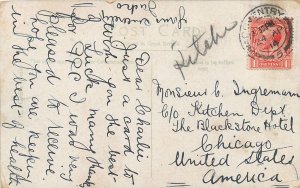 POST CARD
Kitchen
Dear Charlie
Just a card to
wish you the best
of luck many thanks
for P.P.C I was very
Pleased to receive
hope you are keeping
in the best of health
Your friend
Pedro
Monsieur C. Ingremann
C/o Kitchen Dept
The Blackstone Hotel
Chicago
United States
America